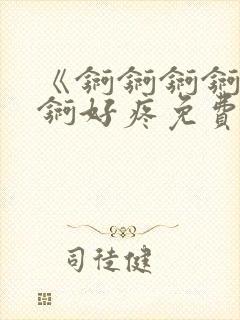 《锕锕锕锕
锕好疼免費
司徒健